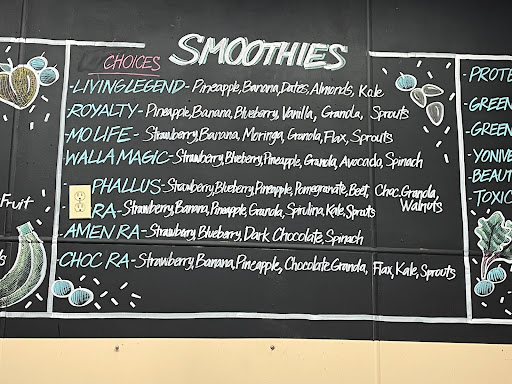 SMOOTHIES
CHOICES
-LIVING LEGEND- Pineapple, Banana, Dates, Almonds, Kale
-ROYALTY- Pineapple, Banana, Blueberry, Vanilla, Granola, Sprouts
-MO LIFE- Strawberry, Banana, Moringa, Granola, Flax, Sprouts
WALLA MAGIC- Strawberry, Blueberry, Pineapple, Granola, Avocado, Spinach
PHALLUS- Strawberry, Blueberry, Pineapple, Pomegranate, Beet, Choc. Granola,
Walnuts
RA- Strawberry, Banana, Pineapple, Granola, Spirulina, Kale, Sprouts
AMEN RA- Strawberry, Blueberry, Dark Chocolate, Spinach
CHOC RA- Strawberry, Banana, Pineapple, Chocolate Granola, Flax, Kale, Sprouts
Fruit
-PROTE
-GREEN
-GREEN
-YONIVE
-BEAUT
-TOXIC